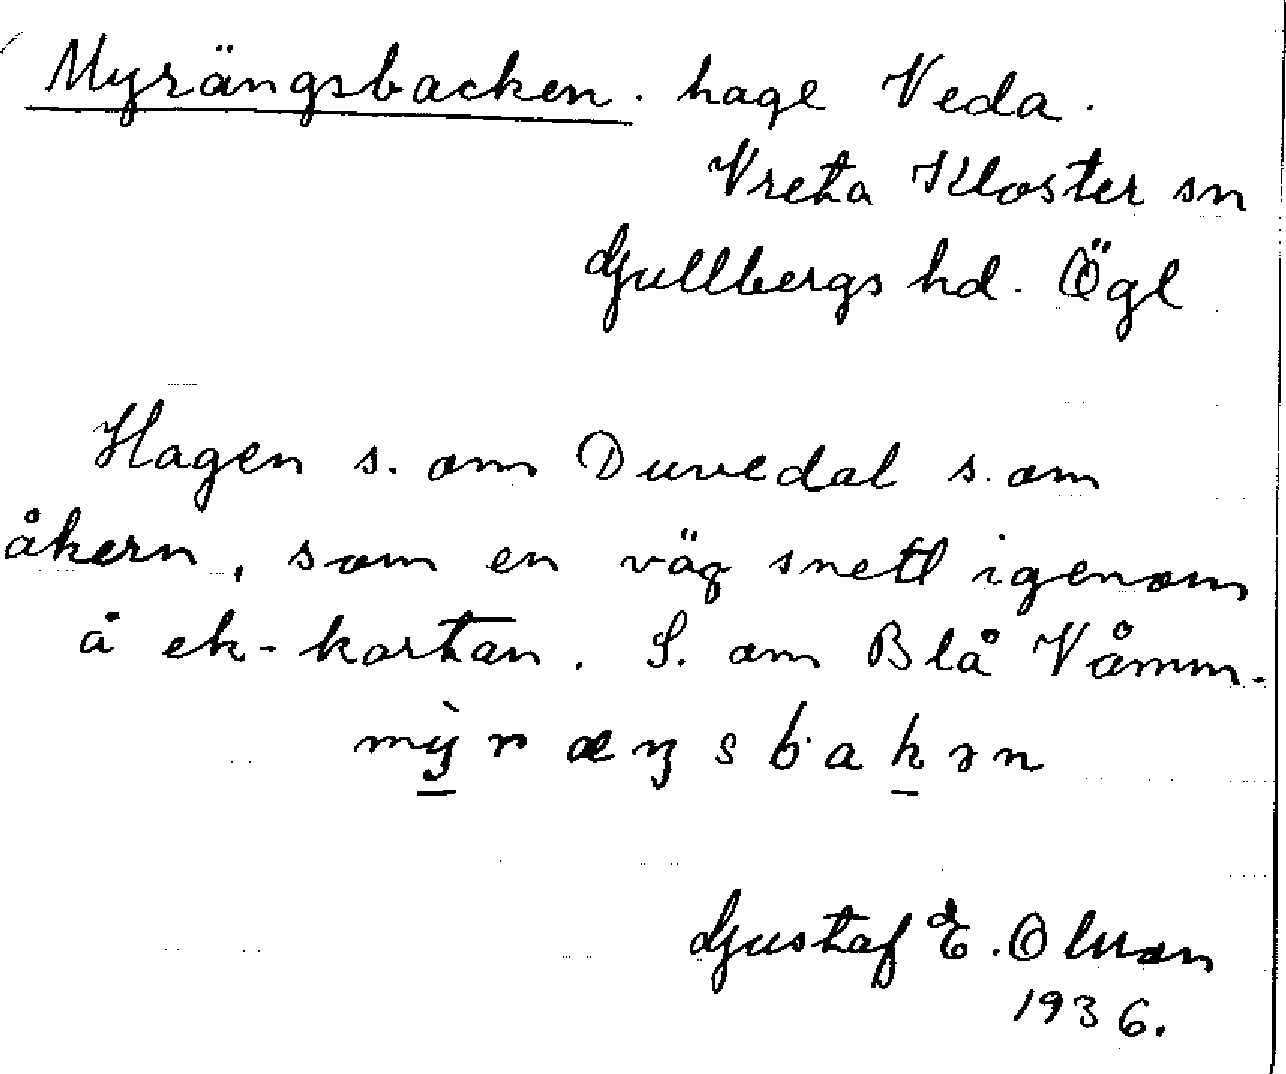 Myrängsbacken. hage Veda.
Vreta Kloster sn
Gullbergs hd. Ögl
Hagen s. om Duvedal s. om
åkern, som en väg snett igenom
å ek-kartan. S. om Blå Våmm.
mỳræŋsbakən
Gustaf E. Olsson
1936.